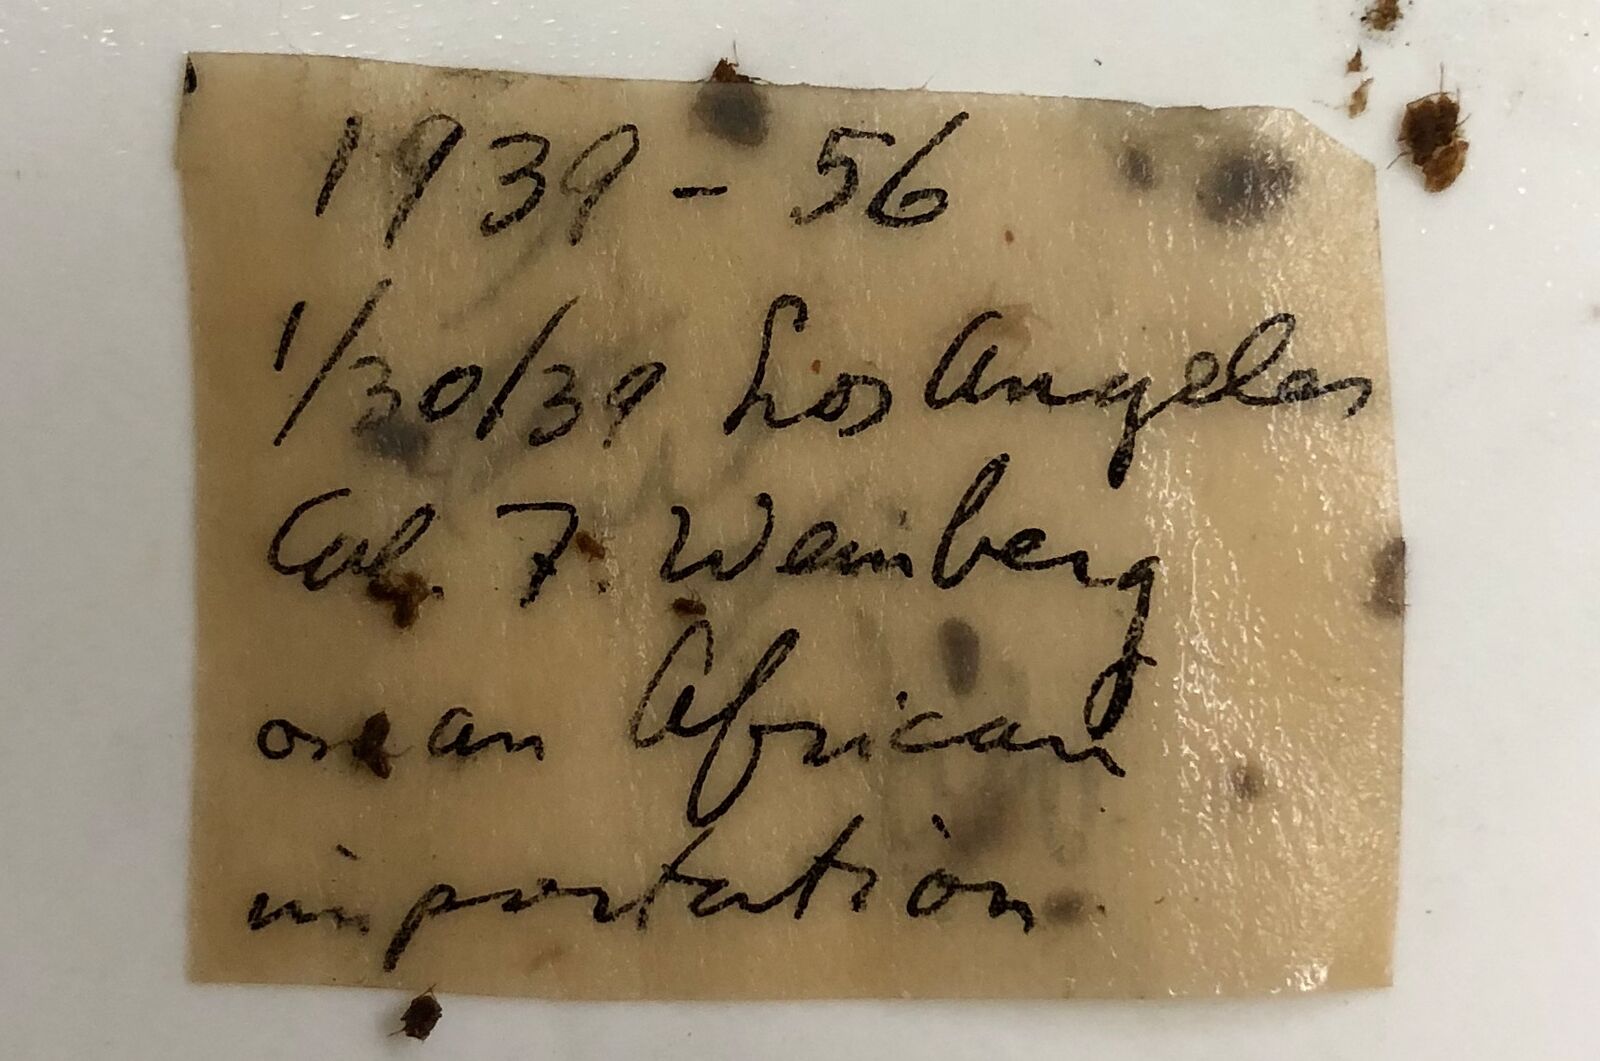 1939 - 56
1/30/39 Los Angeles
Cal. F. Weinberg
on an African
importation